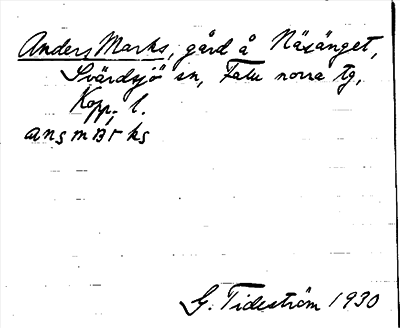 Anders Marks, gård å Näsänget,
Svärdsjö sn, Falu norra tg,
Kopp. l.
ansmarks
G. Tideström 1930